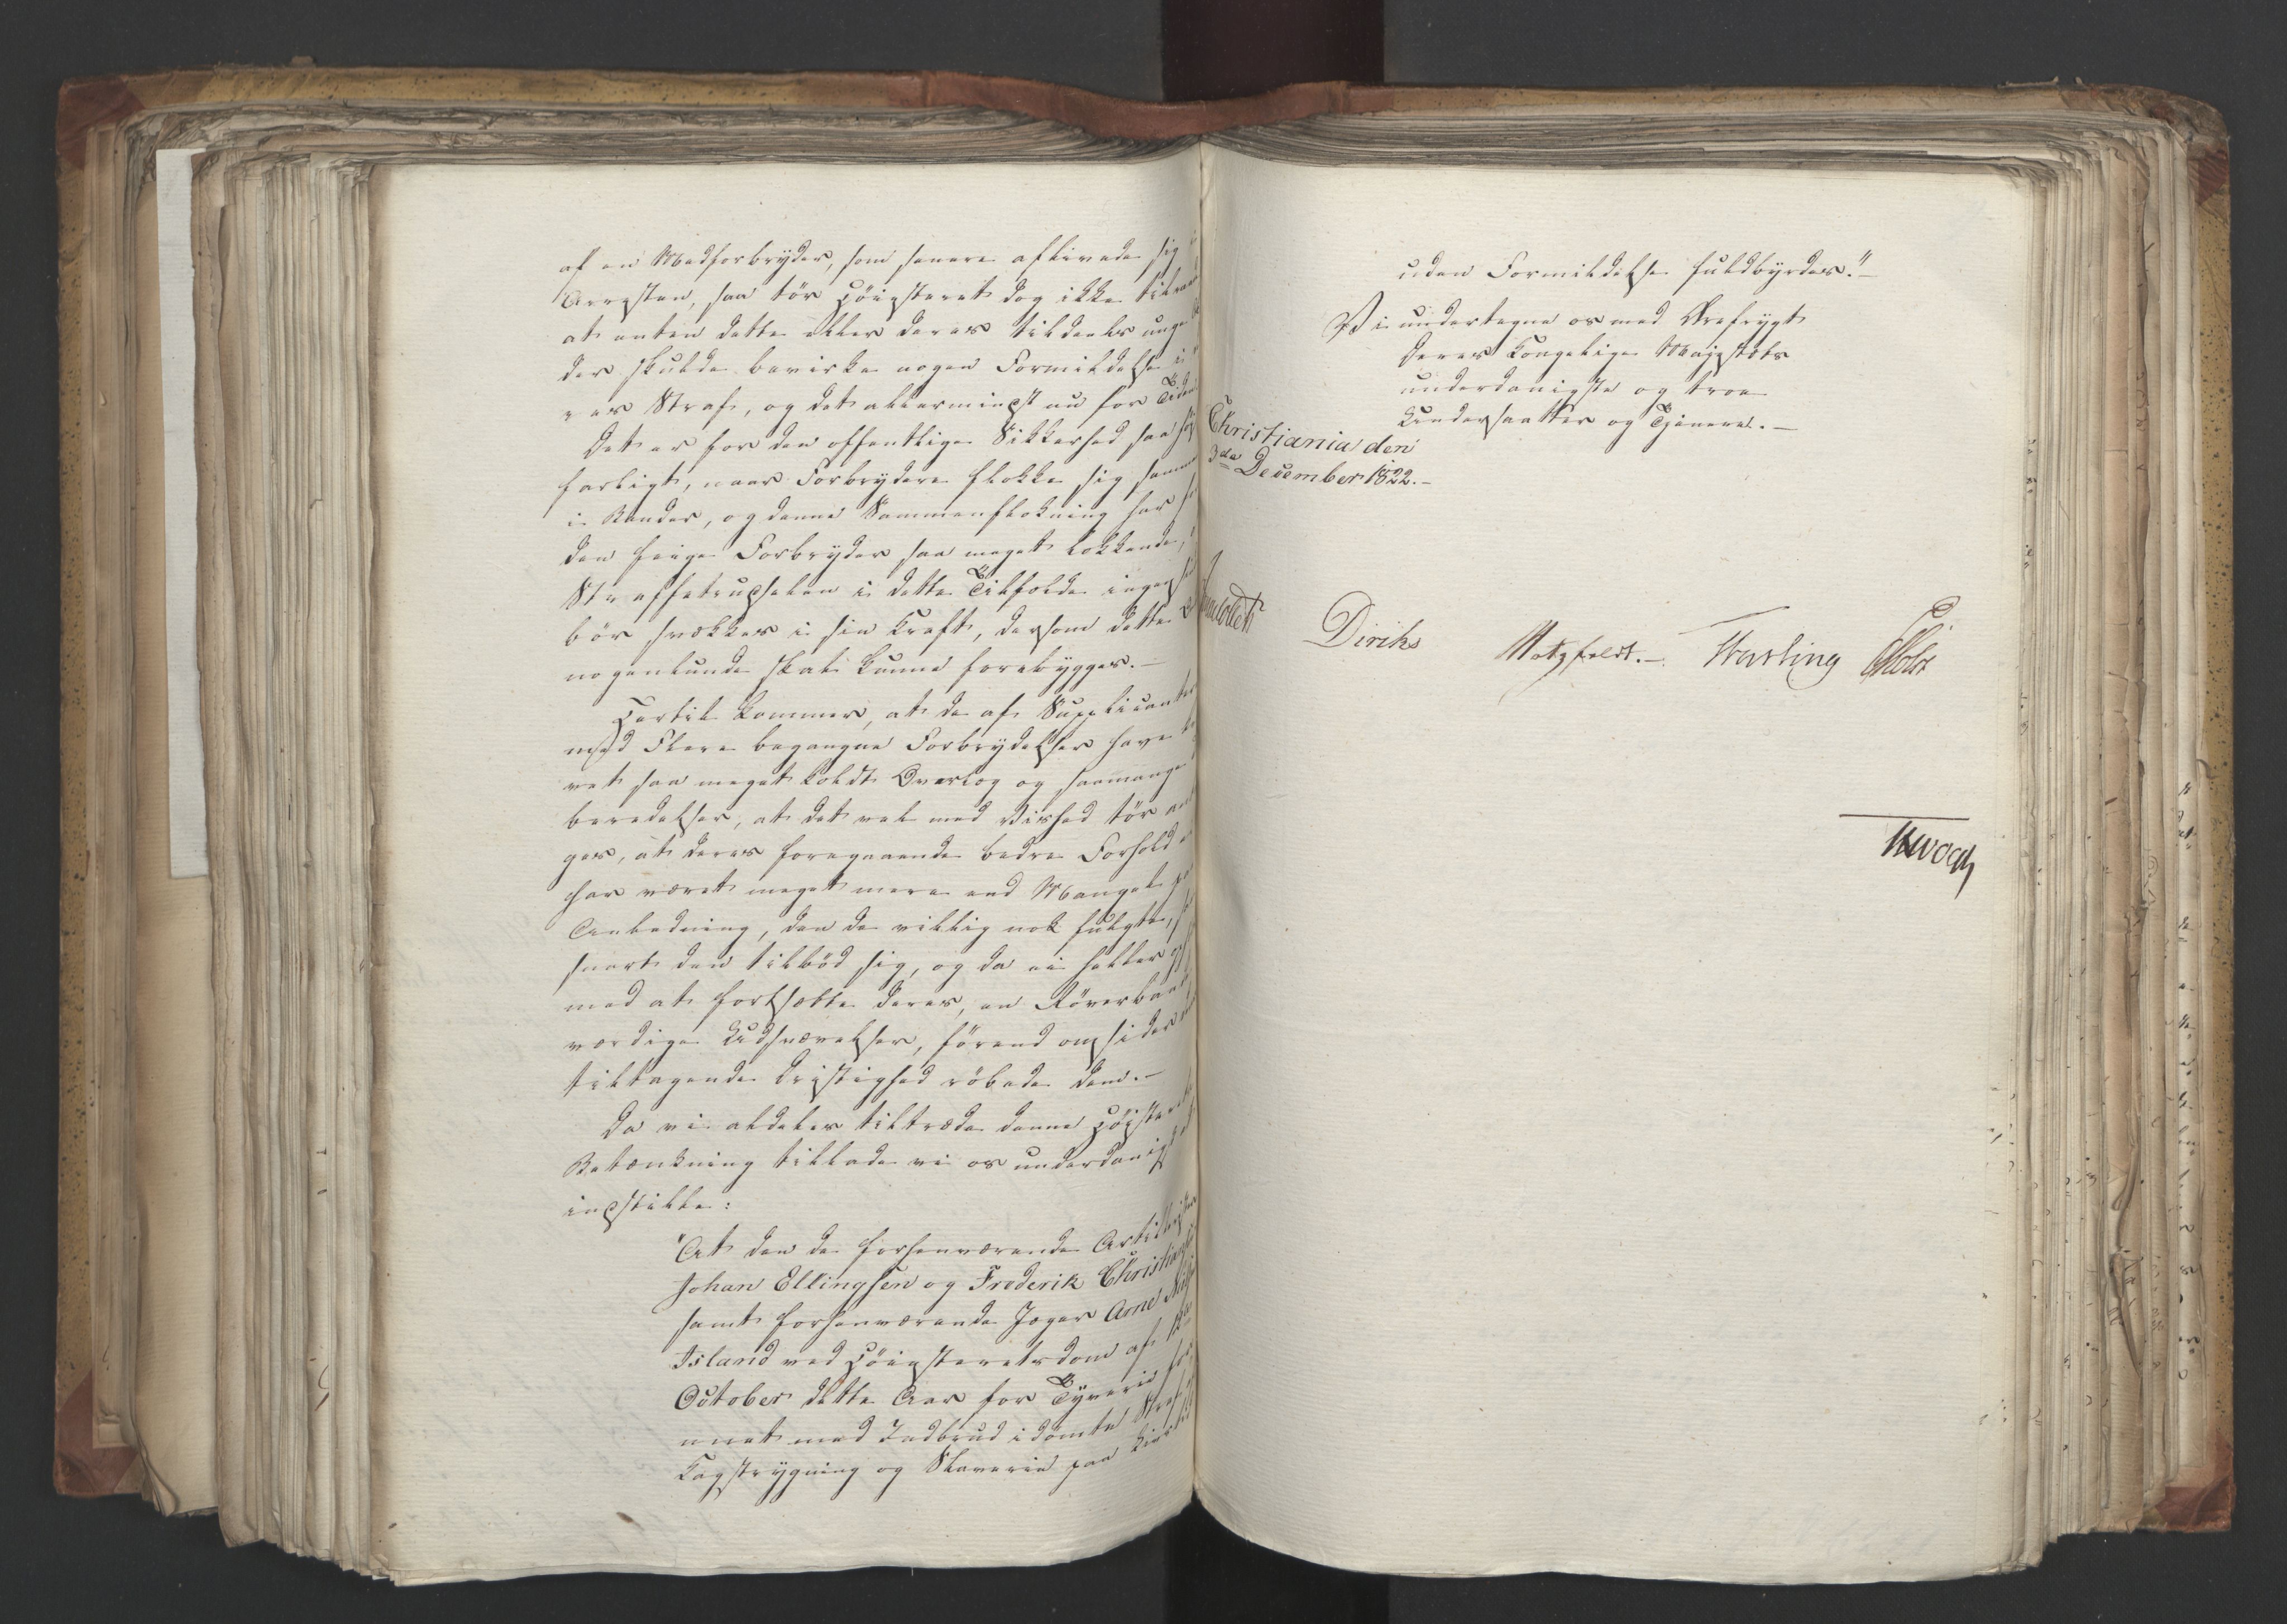 af en Medforbryder, som senere aflivede sig i
Arresten, saa tør Høiesteret dog ikke tilraade
at enten dette eller deres tildeels unge
der skulde bevirke nogen Formildelse i
res Straf, og det allermindst nu for Tiden
Det er for den offentlige Sikkerhed saa høist
farligt, naar Forbrydere flokke sig sammen
i Bander, og denne Sammenflokning har for
den feige Forbryder saa meget lokkende,
Straffetrudselen i dette Tilfælde ingenlunde
bør svækkes i sin Kraft, dersom dette
nogenlunde skal kunne forebygges.—
Hertil kommer, at de af Supplicanterne
med Flere begangne Forbrydelser have
vet saa meget koldt Overlæg og saamange
beredelser, at det vel med Vished tør
ges, at deres foregaaende bedre Forhold
har været meget mere end Mangel paa
Anledning, den de villig nok fulgte, saa
snart den tilbød sig, og da ei heller op
med at fortsætte deres, en Røverbande
værdige Udsvævelser, førend omsider
tiltagende Dristighed røbede dem.—
Da vi aldeles tiltræde denne Høiesterets
Betænkning tillade vi os underdanigst at
indstille:
"At den de forhenværende Artillerister
Johan Ellingsen og Frederik Christiansen
samt forhenværende Jæger Arne Nils
Island ved Høiesteretsdom af
October dette Aar for Tyverie for
enet med Indbrud idømte Straf
Kagstrygning og Slaverie paa Livstid
uden Formildelse fuldbyrdes."—
Vi undertegne os med Ærefrygt
Deres Kongelige Majestæts
underdanigste og troe
Undersaatter og Tjenere.—
Christiania den
3die December 1822.—
Diriks
Motzfeldt.—
Hesting
Holst